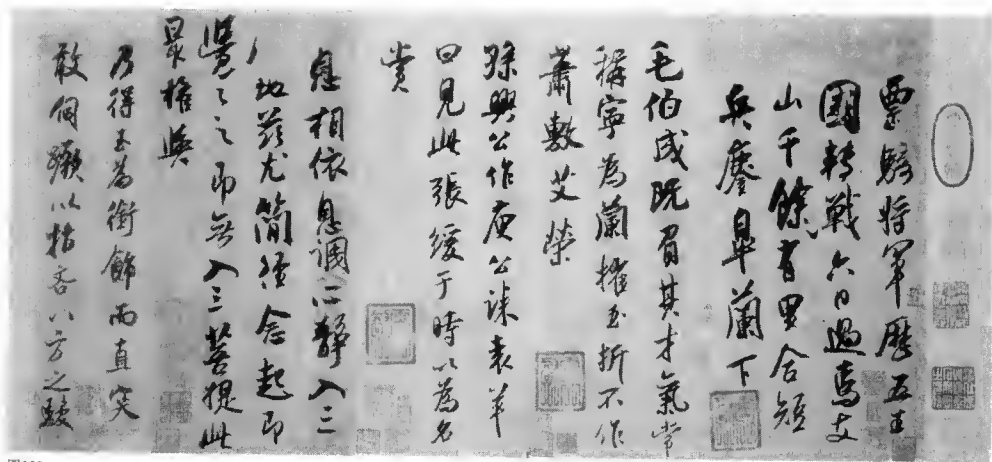 票騎將軍歷五王
國轉戰六日過焉支
山千餘有里合短
兵鏖皋蘭下
毛伯成既負其才氣常
稱寧為蘭摧玉折不作
蕭敷艾榮
孫興公作庾公誄袁羊
曰見此張緩于時以為名
賞
息相依息調心靜入三
地茲尤簡徑念起即
覺々之即無入三菩提此
最權輿
乃得玉為銜飾而直突
敢伺以八方之駿